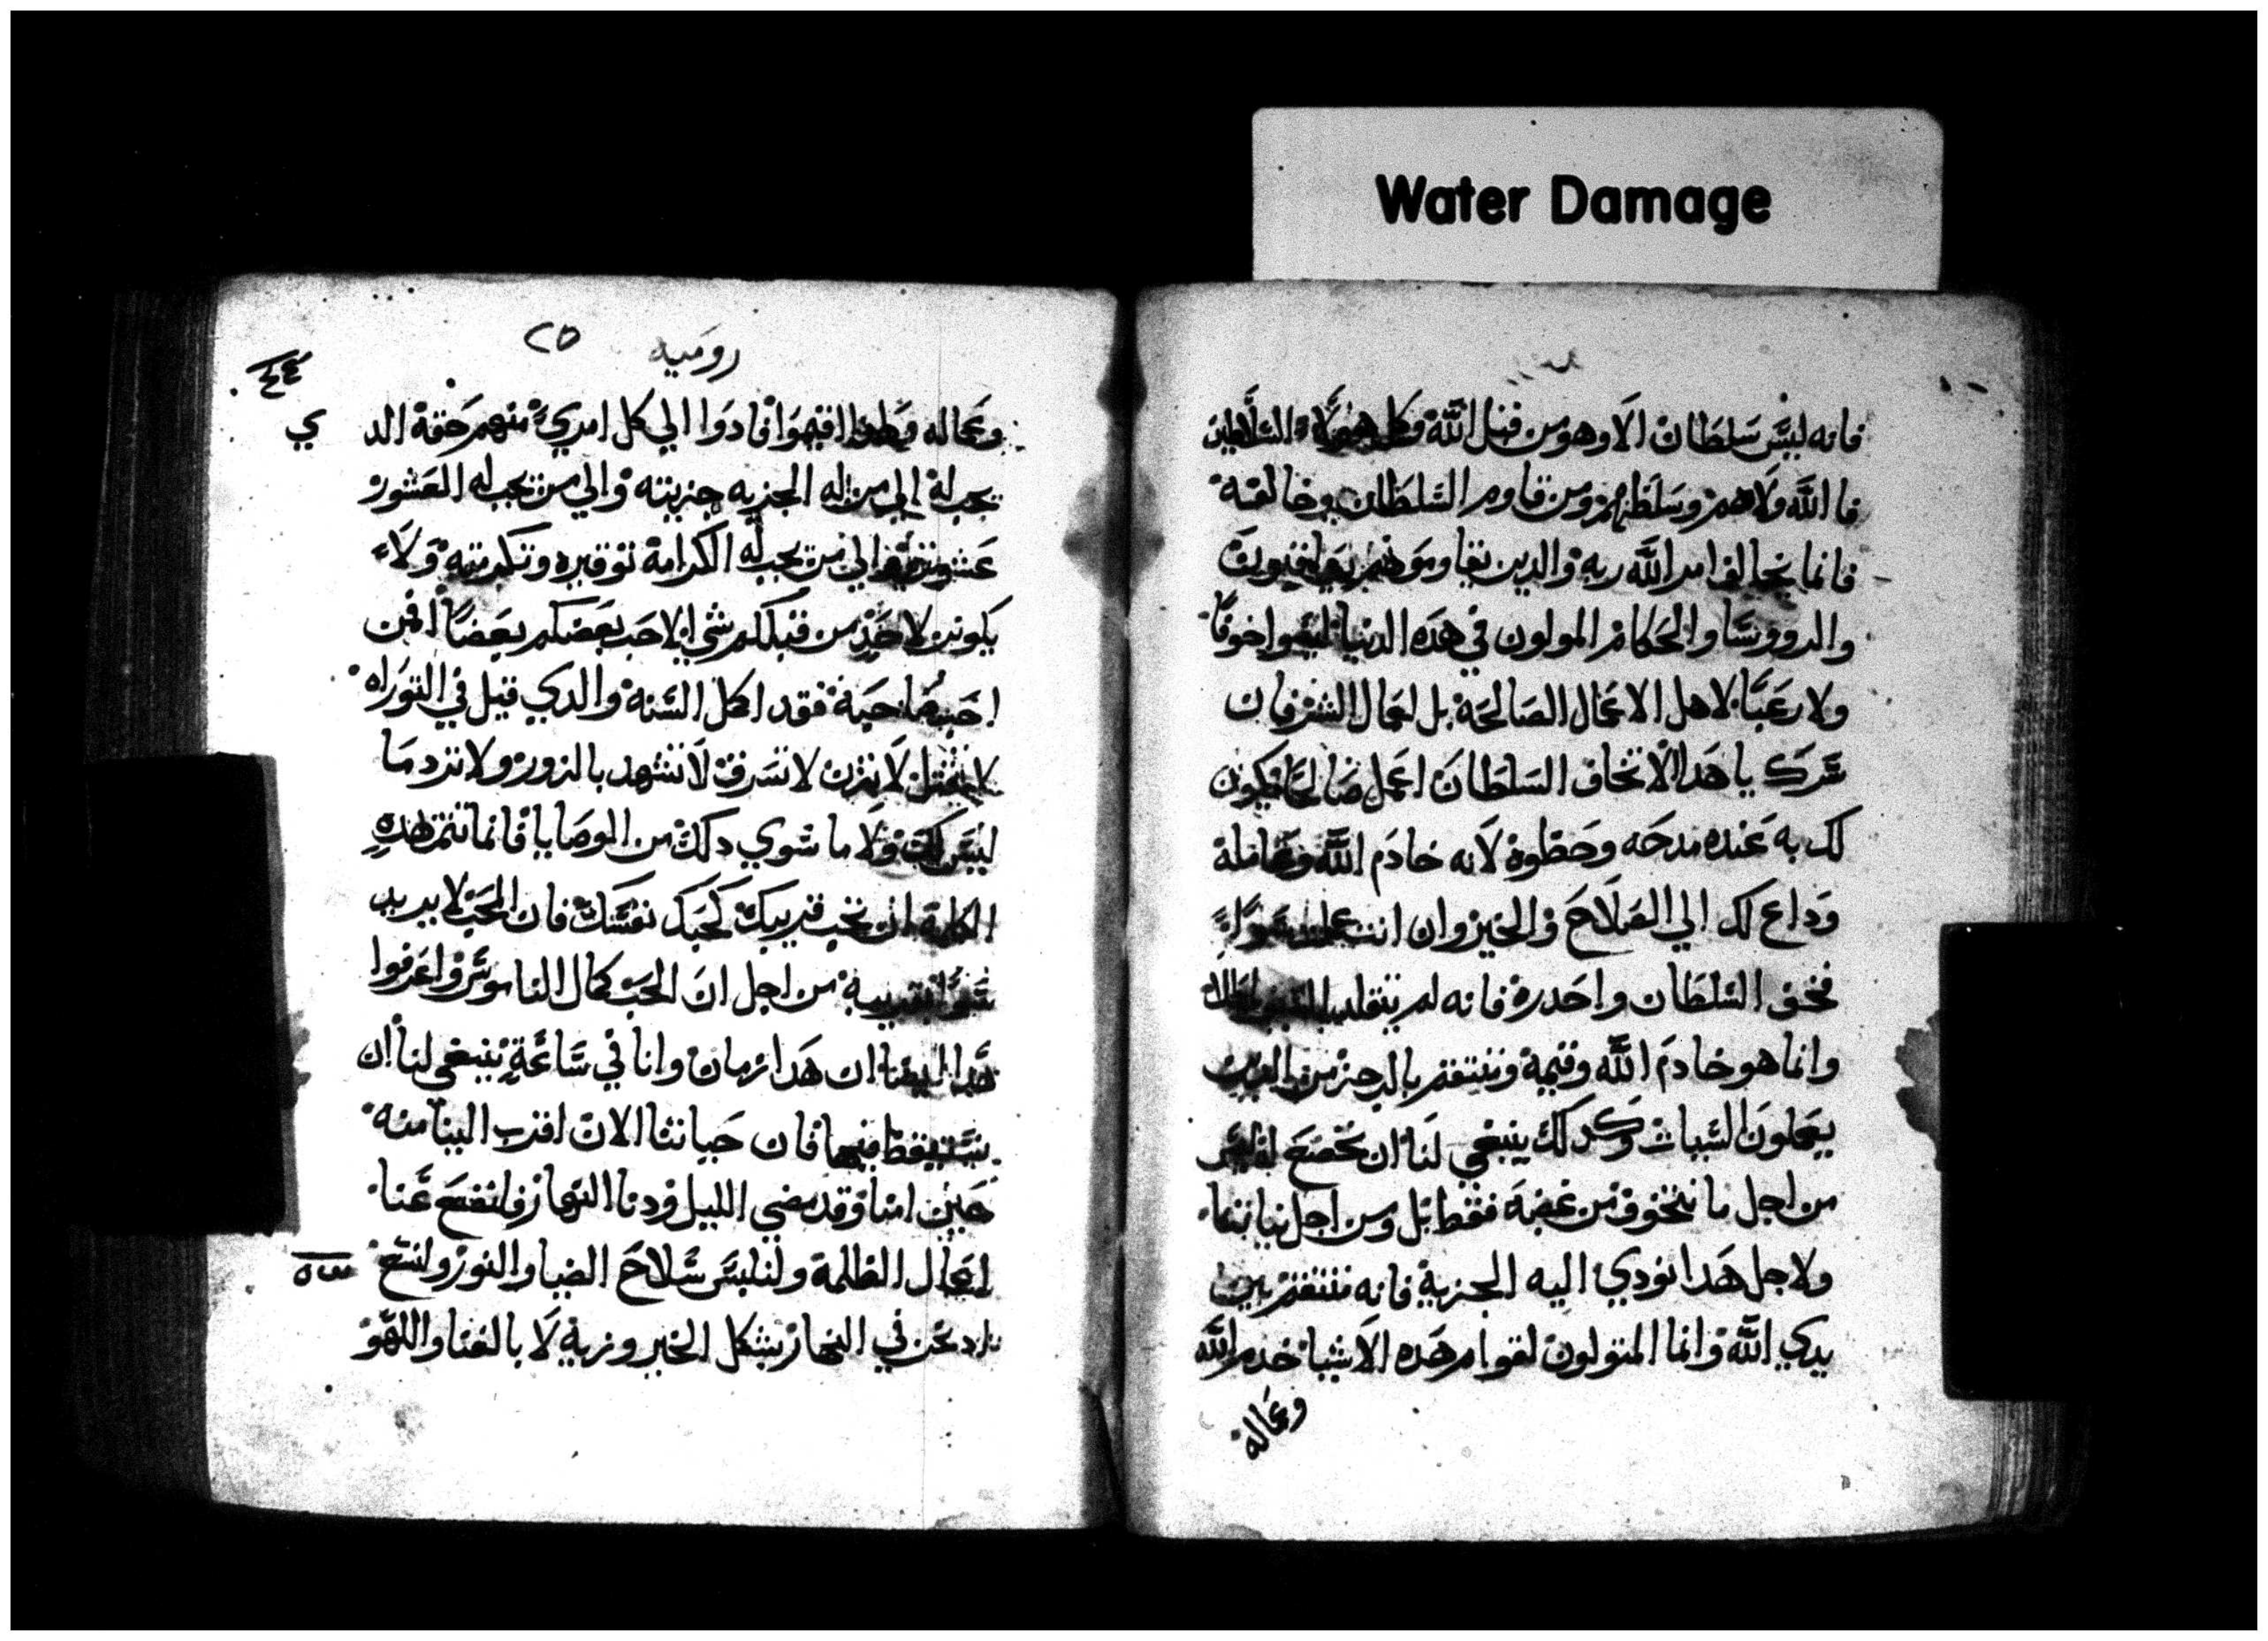 Water Damage
فانه ليس سلطان الا وهو من قبل الله وكل هولاء السلاطين
فا الله ولاهم وسلطهم ومن قاوم السلطان وخالفه
فانما يخالف امر الله ربه والدين يقاوموهم
والرووسا والحكام المولون في هده الدنيا ليسوا خوفا
ولا رعبا لاهل الاعمال الصالحه بل لعمال الشر فان
سرك يا هدا الا تخاف السلطان اعمل صالحا فيكون
لك به عنده مدحه وحظوة لانه خادم الله وعامله
وداع لك الي الصلاح والخير وان انت عملت سواء
فخف السلطان واحدره فانه لم يتقلد
وانما هو خادم الله وقيمه ومنتقم بالرجز من الدين
يعملون السيات وكدلك ينبغي لنا ان نخضع
من اجل ما نتخوف من غضبه فقط بل ومن اجل نياتنا
ولاجل هدا نودي اليه الجزية فانه منتقم بين
يدي الله وانما المتولون لقوام هده الاشيا خدم الله
وعماله
رومية ٢٥
وعماله فادوا الي كل امري منهم حقه الدي
تجب له الي من له الجزيه جزيته والي من تجب له العشور
الي من تجب له الكرامة توقيره وتكرمته ولاء
يكونن لاحد من قبلكم شي الا حب بعضكم بعضا فمن
احب صاحبه فقد اكمل السنه والدي قيل في التوراه
لا تقتل لا تزن لا تسرق لا تشهد بالزور ولا ترد ما
ليس لك ولا ما سوي دلك من الوصايا فانما تتم هده
الكلمة ان تحب قريبك كحبك نفسك فان المحب لا يريد
سوا بقريبه من اجل ان الحب كمال الناموس واعرفوا
هدا ايضا ان هدا زمان وانا في ساعة ينبغي لنا ان
نستيقظ فيها فان حياتنا الان اقرب الينا منه
حين امنا وقد مضي الليل ودنا النهار فلنضع عنا
اعمال الظلمة ولنلبس سلاح الضيا والنور ولنسع
اد نحن في النهار بشكل الخير وزيه لا بالغنا واللهو